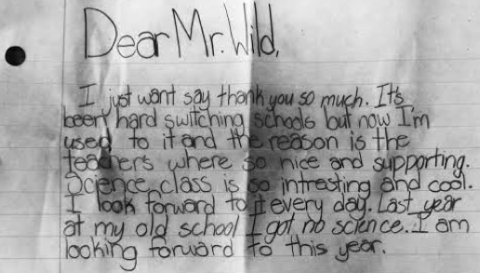 Dear Mr. Wild,
I just want say thank you so much. It's
been hard switching schools but now I'm
used to it and the reason is the
teachers where so nice and supporting.
Science class is so intresting and cool.
I look forward to it every day. Last year
at my old school I got no science. I am
looking forward to this year.